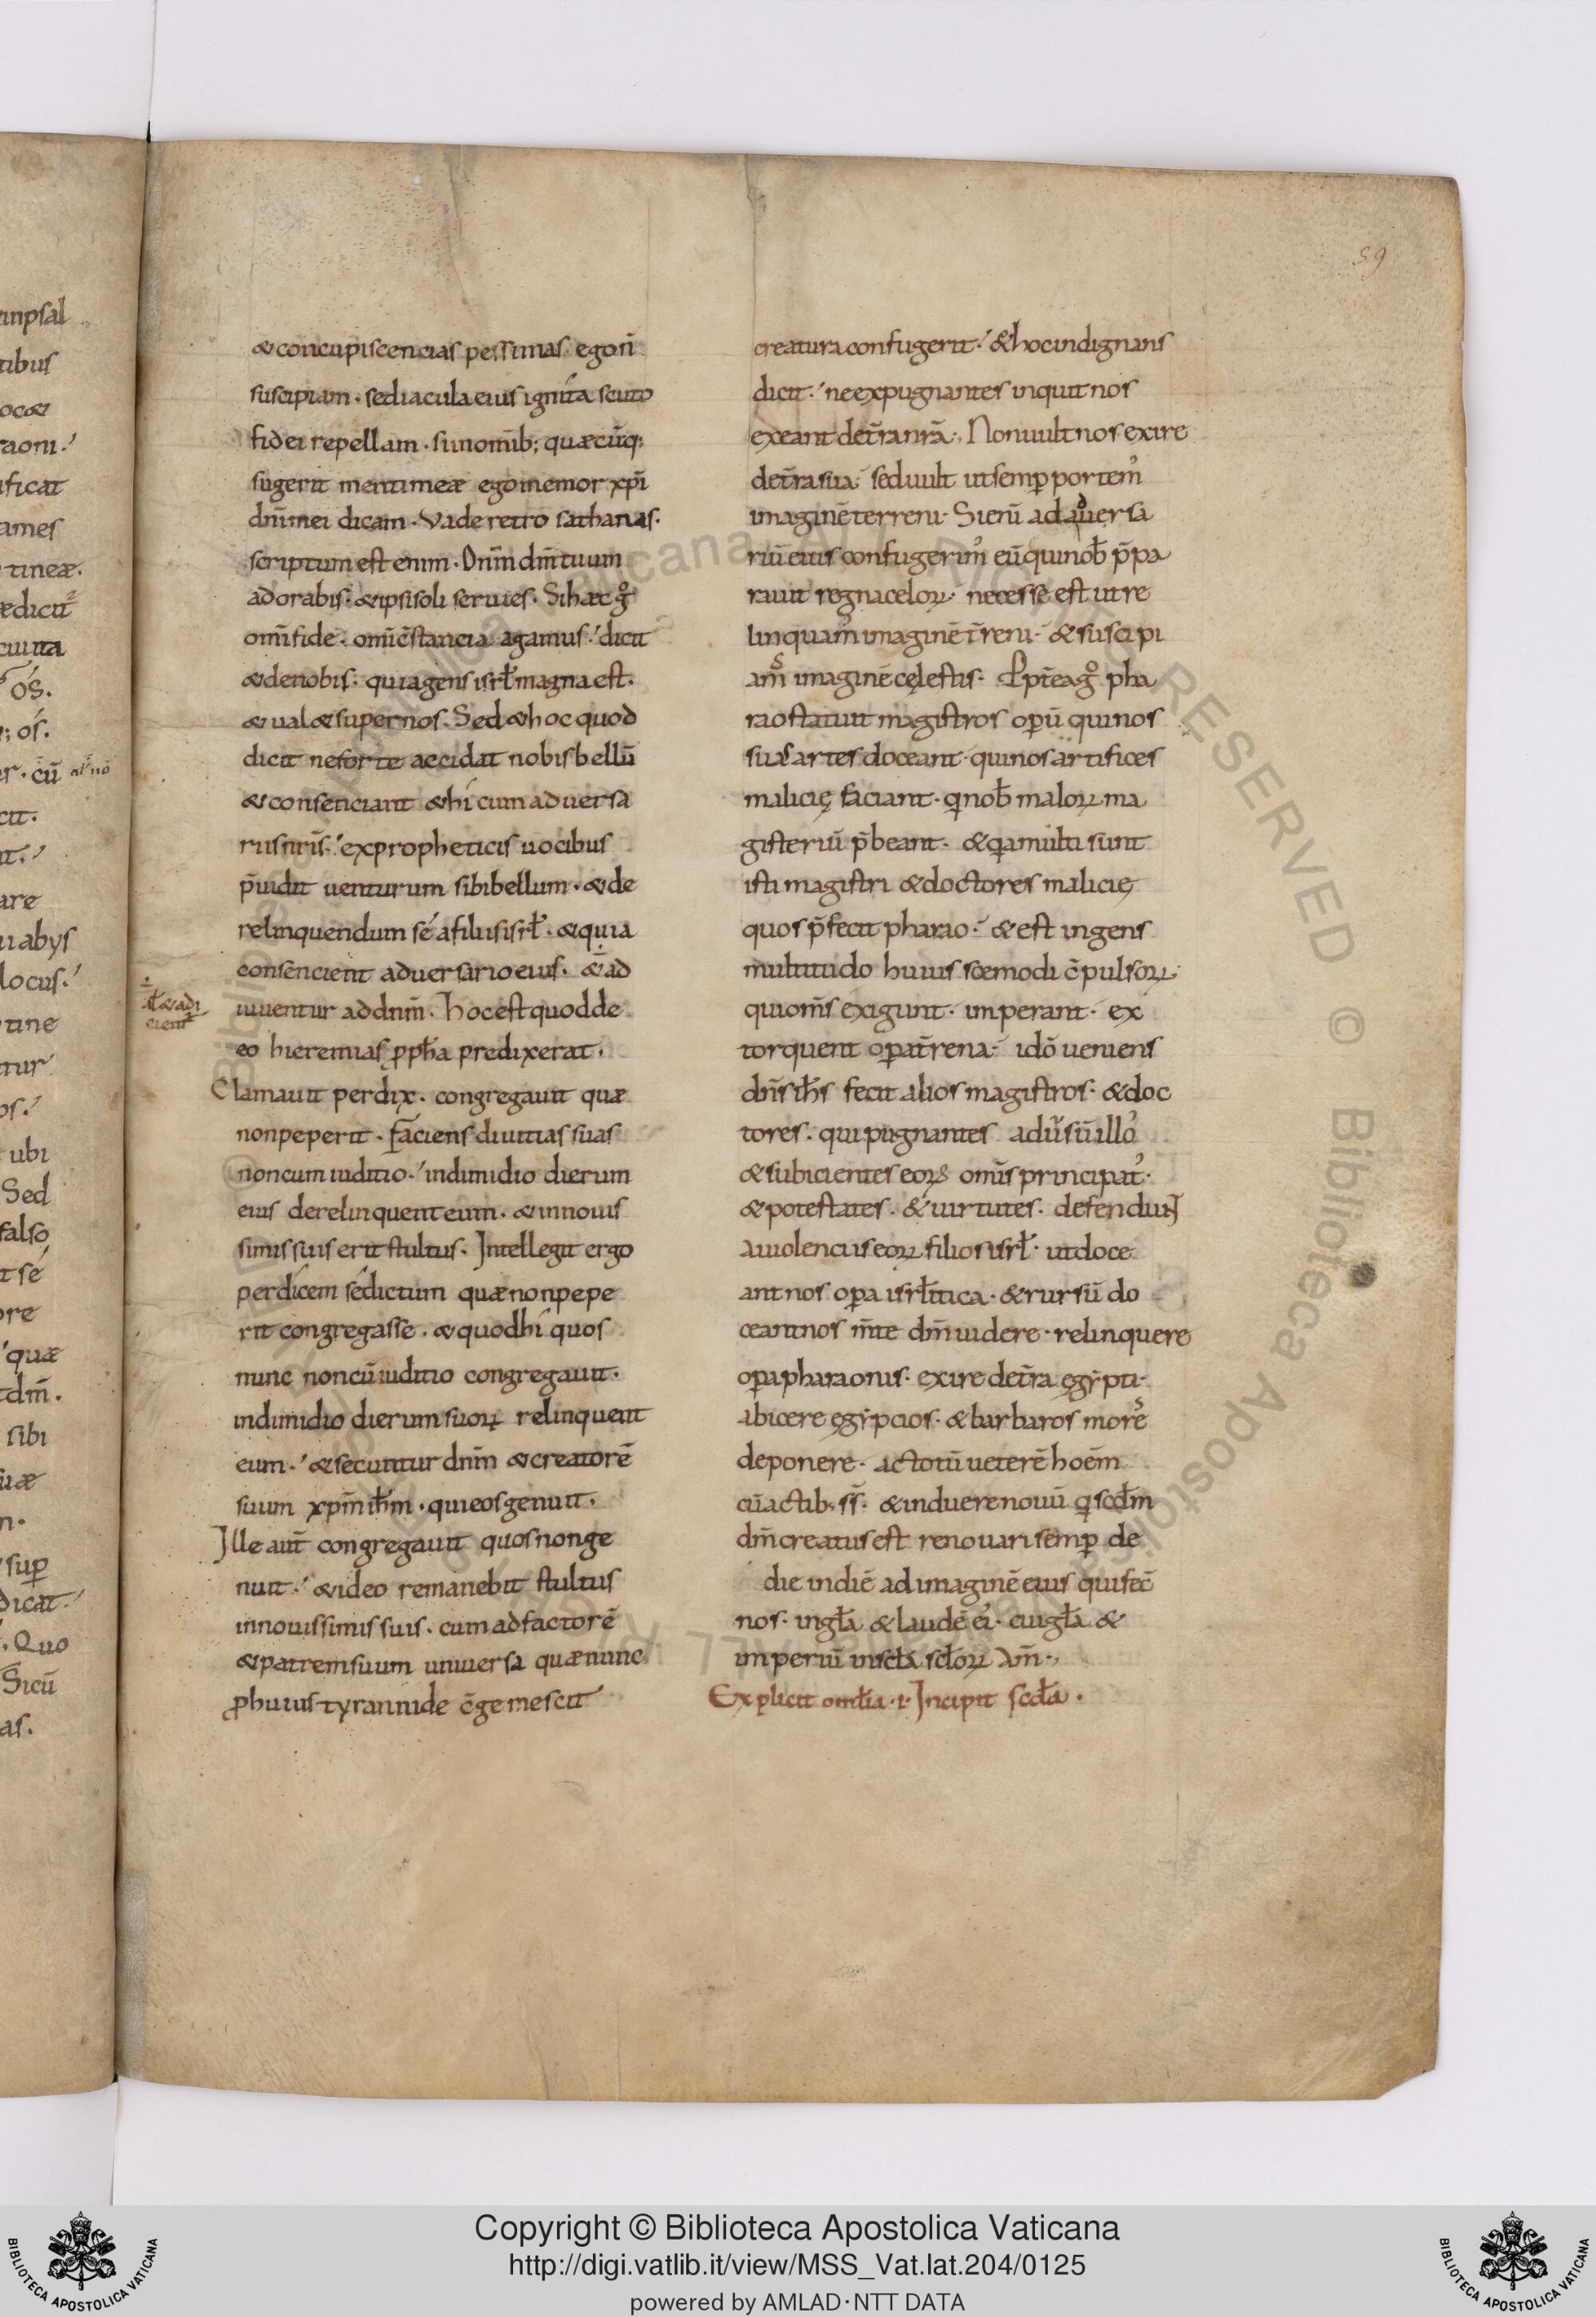 59
& concupiscencias pessimas. ego n̄
suscipiam. sed iacula eius ignita scuto
fidei repellam. si in omīb; quæcūq;
sugerit menti meæ ego memor xp̄i
dn̄i mei dicam. Vade retro sathanas.
scriptum est enim. Dn̄m dm̄ tuum
adorabis. & ipsi soli servies. Si hæc g̊
omī fide. omī c̄stancia agamus.' dicit
& de nobis. quia gens isrł magna est.
& ualæ super nos. Sed & hoc quod
dicit ne forte accidat nobis bellū
& consenciant & hi cum aduersa
riis nr̄is.' ex propheticis uocibus
p̄uidit uenturum sibi bellum. & de
relinquendum sé a filiis isrł. & quia
consencient aduersario eius. & ad
iuuentur ad dnm̄. Hoc est quod de
eo hieremias p̱pħa predixerat.
Clamauit perdix. congregauit quæ
non peperit. Faciens diuitias suas
non cum iuditio.' in dimidio dierum
eius derelinquent eum. & in nouis
simis suis erit stultus. Intellegit ergo
perdicem sé dictum quæ non pepe
rit congregasse. & quod hí quos
nunc non cū iuditio congregauit.
in dimidio dierum suoꝝ relinquent
eum.' & secuntur dnm̄ & creatorē
suum xp̄m iħm. qui eos genuit.
Ille aut̄ congregauit quos non ge
nuit.' & ideo remanebit stultus
in nouissimis suis. cum ad factorē
& patrem suum uniuersa quæ nunc
ꝓ huius tyrannide c̄gemescit
creatura confugerit.' & hoc indignans
dicit.' ne expugnantes inquit nos
exeant de tr̄a nr̄ā. Non uult nos exire
de tr̄a sua. sed uult ut semꝑ portem᾽
imaginē terreni. Si enī ad aduersa
riū eius confugerim᾽ eū qui nob̄ p̄pa
rauit regna celoꝝ. necesse est ut re
linquam᾽ imaginē t̄reni. & suscipi
am᾽ imaginē cęlestis. Ꝓpt̄ea g̊ pha
rao statuit magistros opū qui nos
suas artes doceant. qui nos artifices
malicię faciant. q̇ nob̄ maloꝝ ma
gisteriū p̄beant. & q̇a multi sunt
isti magistri & doctores malicię
quos p̄fecit pharao. & est ingens
multitudo huiusscemodi c̄pulsoꝝ.
qui om̄s exigunt. imperant. ex
torquent oꝑa t̄rena. idō ueniens
dn̄s iħs fecit alios magistros. & doc
tores. qui pugnantes adūsū illo᾽
& subicientes eoꝝ om̄s principat᾽.
& potestates. & uirtutes. defendunt
a uiolenciis eoꝝ filios isrł. ut doce
ant nos oꝑa isrłitica. & rursū do
ceant nos m̄te dm̄ uidere. relinquere
oꝑa pharaonis. exire de tr̄a egẏpti.
abicere egẏpcios. & barbaros mores
deponere. ac totū ueterē hoēm
cū actib; ss̄. & induere nouū q̇ scdm̄
dm̄ creatus est renouari semꝑ de
die in diē ad imaginē eius qui fec̄
nos. in gła & laudē ei᾽. cui gła &
imperiū in scła scłoꝝ Am̄.
Explicit omełia .i. Incipit scda.
Copyright © Biblioteca Apostolica Vaticana
http://digi.vatlib.it/view/MSS_Vat.lat.204/0125
powered by AMLAD·NTT DATA
BIBLIOTECA APOSTOLICA VATICANA
BIBLIOTECA APOSTOLICA VATICANA